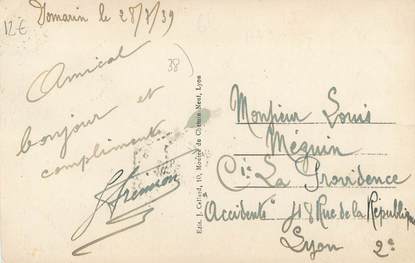 12€
Domarin le 28/8/39
38)
Amical
bonjour et
compliments
Edit. J. Cellard, 10, Montée de Choulans, Lyon
Monsieur Louis
Méguin
Cie La Providence
Accidents 18 Rue de la République
Lyon 2e